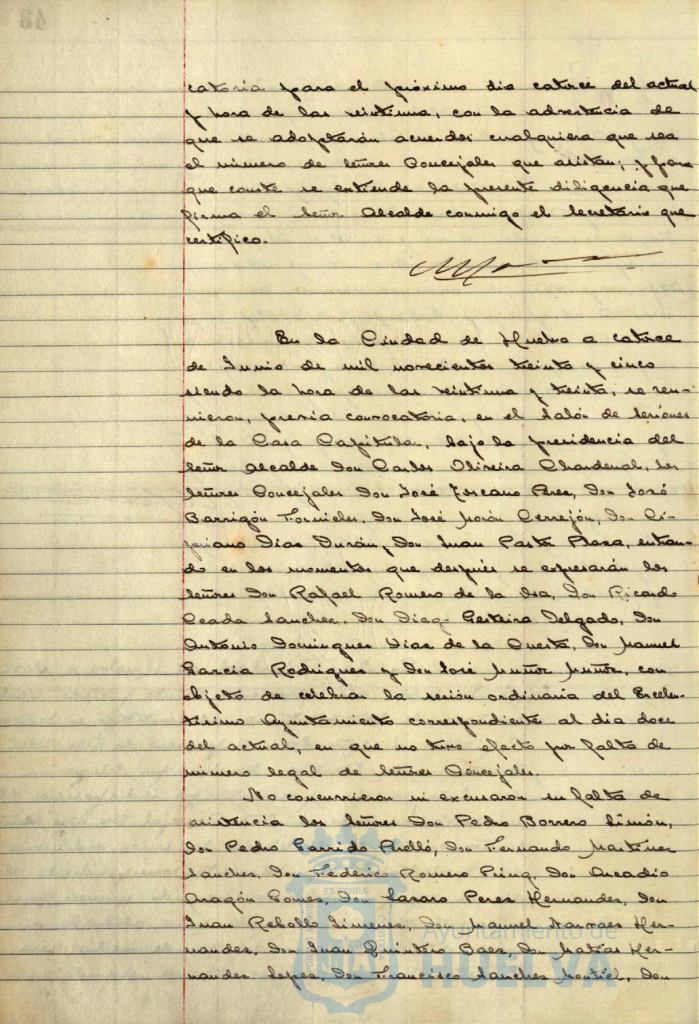 43
catoria para el próximo dia catorce del actual
y hora de las veintiuna, con la advertencia de
que se adoptarán acuerdos cualquiera que sea
el número de señores Concejales que asistan; y para
que conste se extiende la presente diligencia que
firma el señor Alcalde conmigo el Secretario que
certifico.
En la Ciudad de Huelva a catorce
de Junio de mil novecientos treinta y cinco
siendo la hora de las veintiuna y treinta, se reu-
nieron, previa convocatoria, en el Salón de Sesiones
de la Casa Capitular, bajo la presidencia del
señor Alcalde Don Carlos Oliveira Chardenal, los
señores Concejales Don José Toscano Perez, Don José
Barrigón Fornieles, Don José Morón Cerrejón, Don Ci-
priano Dias Durán y Don Juan Pastor Plaza, entran-
do en los momentos que después se expresarán los
señores Don Rafael Romero de la Osa, Don Ricardo
Ceada Sanchez, Don Diego Gesteira Delgado, Don
Antonio Dominguez Dias de la Cuesta, Don Manuel
Garcia Rodriguez y Don José Muñoz Muñoz, con
objeto de celebrar la sesión ordinaria del Excelen-
tísimo Ayuntamiento correspondiente al dia doce
del actual, en que no tuvo efecto por falta de
número legal de señores Concejales.
No concurrieron ni excusaron su falta de
asistencia los señores Don Pedro Borrero Limón,
Don Pedro Garrido Perelló, Don Fernando Martinez
Sanchez, Don Federico Romero Don Arcadio
Aragón Gomez, Don Lazaro Perez Hernandez, Don
Juan Rebollo Jimenez, Don Manuel Narvaez Her-
nandez, Don Juan Quintero Baez, Don Matías Her-
nandez Lopez, Don Francisco Sanchez Montiel, Don
Ayuntamiento de
HUELVA